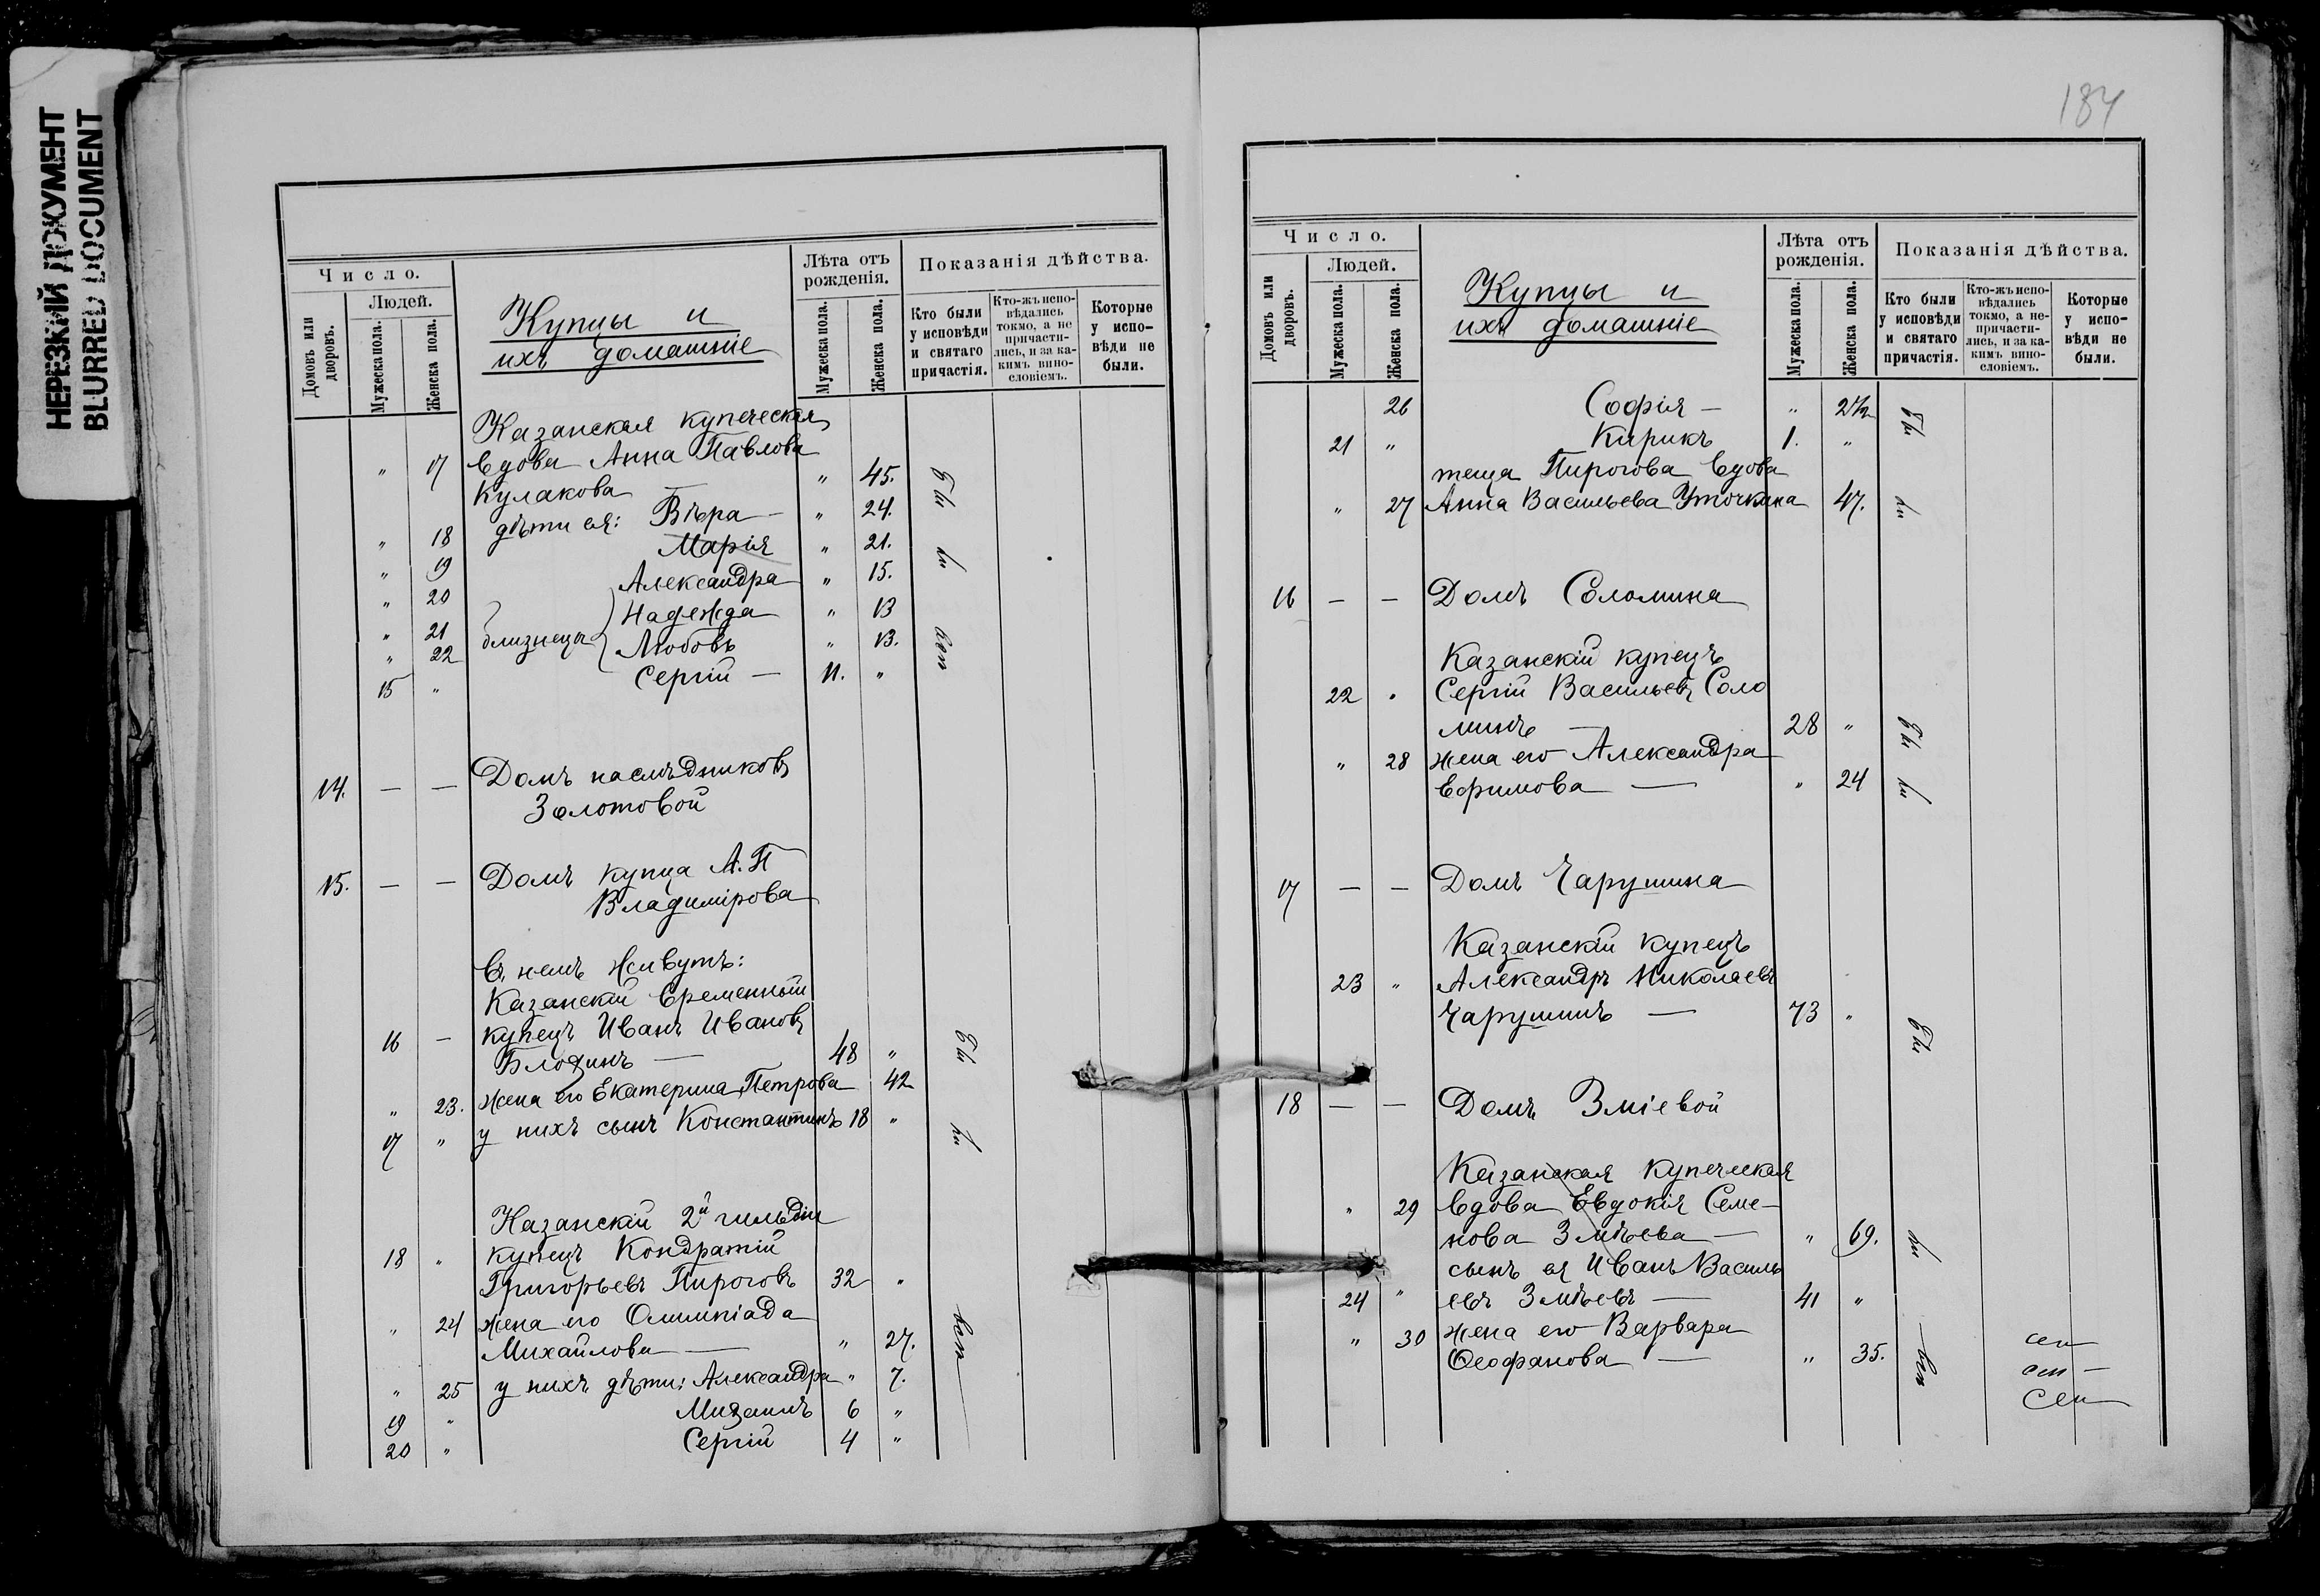 НЕРЕЗКИЙ ДОКУМЕНТ
BLURRED DOCUMENT
Число.
Людей.
Домовъ или дворовъ.
Мужеска пола.
Женска пола.
Купцы и
ихъ домашніе
Лѣта отъ рожденія.
Мужеска пола.
Женска пола.
Показанія дѣйства.
Кто были у исповѣди и святаго причастія.
Кто-жъ испо-вѣдались токмо, а не причасти-лись, и за ка-кимъ вино-словіемъ.
Которые у испо-вѣди не были.
Казанская купеческая
" 17 вдова Анна Павлова
Кулакова — " 45.
" 18 дѣти ея: Вѣра — " 24.
" 19 Марія " 21.
" 20 Александра " 15.
" 21 близнецы Надежда " 13
" 22 Любовь " 13.
15 " Сергій — 11. "
Бы
ли
все
14. — — Домъ наслѣдниковъ
Золотовой
15. — — Домъ купца А. П
Владимірова
Въ немъ живутъ:
Казанскій временный
16 — купецъ Иванъ Ивановъ
Блохинъ — 48 "
" 23. жена его Екатерина Петрова 42
17 " у нихъ сынъ Константинъ 18 "
Бы
ли
Казанскій 2й гильдіи
18 " купецъ Кондратій
Григорьевъ Пироговъ 32 "
" 24 жена его Олимпіада
Михайлова — " 27.
" 25 у нихъ дѣти: Александра " 7.
19 " Михаилъ 6 "
20 " Сергій 4 "
все
184
Число.
Людей.
Домовъ или дворовъ.
Мужеска пола.
Женска пола.
Купцы и
ихъ домашніе
Лѣта отъ рожденія.
Мужеска пола.
Женска пола.
Показанія дѣйства.
Кто были у исповѣди и святаго причастія.
Кто-жъ испо-вѣдались токмо, а не-причасти-лись, и за ка-кимъ вино-словіемъ.
Которые у испо-вѣди не были.
26 Софія — " 2½
21 " Кирикъ 1. "
теща Пирогова вдова
" 27 Анна Васильева Уточкина 47.
Бы
ли
16 — — Домъ Соломина
Казанскій купецъ
22 " Сергій Васильевъ Соло
минъ — 28 "
" 28 жена его Александра
Ефимова — " 24
Бы
ли
17 — — Домъ Чарушина
Казанскій купецъ
23 " Александръ Николаевъ
Чарушинъ — 73 "
Бы
18 — — Домъ Зміевой
Казанская купеческая
" 29 вдова Евдокія Семе-
нова Змѣева — " 69.
сынъ ея Иванъ Василь
24 " евъ Змѣевъ — 41 "
" 30 жена его Варвара
Ѳеофанова — " 35.
ли
все